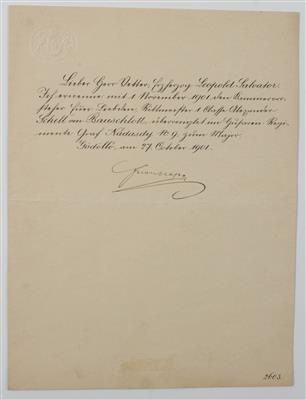 Lieber Herr Vetter, Erzherzog Leopold Salvator.
Ich ernenne mit 1. November 1901 den Kammervor-
steher Euer Liebden, Rittmeister 1. Classe Alexander
Schell von Bauschlott, überzählig im Husaren-Regi-
mente Graf Nádasdy № 9 zum Major.
Gödöllő, am 27. October 1901.
2603